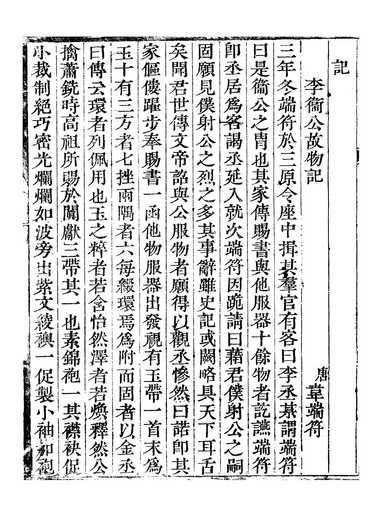 記
李衞公故物記
唐韋端符
三年冬端符於三原令座中揖其羣官有客曰李丞某謂端符
曰是衞公之胄也其家傳賜書與他服器十餘物者訖讌端符
卽丞居爲客謁丞延入就次端符因跪請曰藉君僕射公之嗣
固願見僕射公之烈之多其事辭雖史記或闕略具天下耳舌
矣聞君世傳文帝詔與公服物者願得以觀丞慘然曰諾卽其
家傴僂躍步奉賜書一函他物服器出發視有玉帶一首末爲
玉十有三方者七挫兩隅者六每綴環焉爲附而固者以金丞
曰傳云環者列佩用也玉之粹者若含怡然澤者若煥釋然公
擒蕭銑時高祖所賜於闐獻三帶其一也素錦袍一其襟袂促
小裁制絕巧密光爛爛如波旁出紫文綾襖一促製小袖如袍